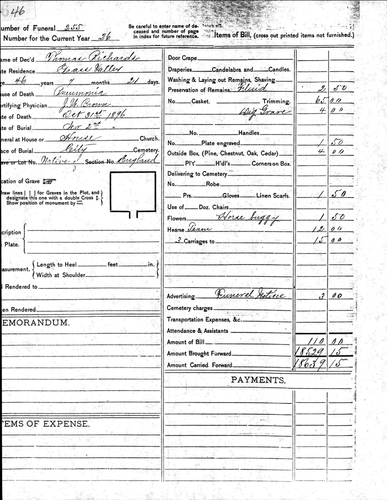 46
Number of Funeral 255
Number for the Current Year 36
Be careful to enter name of deceased and number of page in index for future reference.
Items of Bill, (cross out printed items not furnished.)
Name of Dec'd Thomas Richards
Late Residence Grass Valley
46 years 7 months 21 days.
Cause of Death Pneumonia
Certifying Physician
Date of Death Oct 31st 1896
Date of Burial Nov 2nd
Funeral at House or House Church.
Place of Burial City Cemetery.
Grave or Lot No. Native of Section No. England
Location of Grave
Draw lines for Graves in the Plot, and
designate this one with a double Cross
Show position of monument by
Description
Plate.
Measurement. Length to Heel feet in.
Width at Shoulder
Bill Rendered to
When Rendered
MEMORANDUM.
ITEMS OF EXPENSE.
Door Crape
Draperies Candelabra and Candles.
Washing & Laying out Remains, Shaving
Preservation of Remains Fluid 2 50
No. Casket, Trimming. 65 00
Dig Grave 4 00
No. Handles
No. Plate engraved 1 50
Outside Box, (Pine, Chestnut, Oak, Cedar) 4 00
P'l'y H'dl's Corners on Box.
Delivering to Cemetery
No. Robe
Prs. Gloves Linen Scarfs. 1 50
Use of Doz. Chairs
Flowers Horse buggy 1 50
Hearse Team 12 00
3 Carriages to 15 00
Advertising Funeral Notice 3 00
Cemetery charges
Transportation Expenses, &c.
Attendance & Assistants
Amount of Bill 110 00
Amount Brought Forward 18529 15
Amount Carried Forward 18639 15
PAYMENTS.